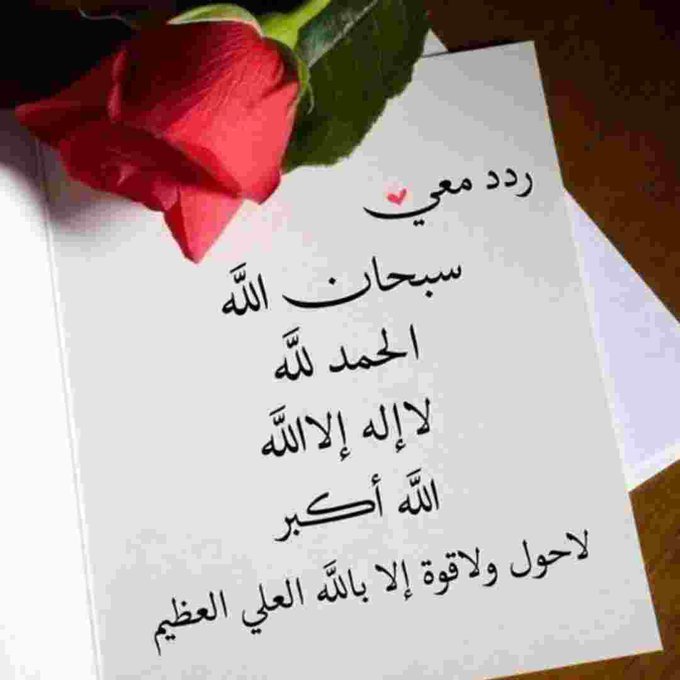 ردد معي
سبحان اللَّه
الحمد للَّه
لاإله إلااللَّه
اللَّه أكبر
لاحول ولاقوة إلا باللَّه العلي العظيم